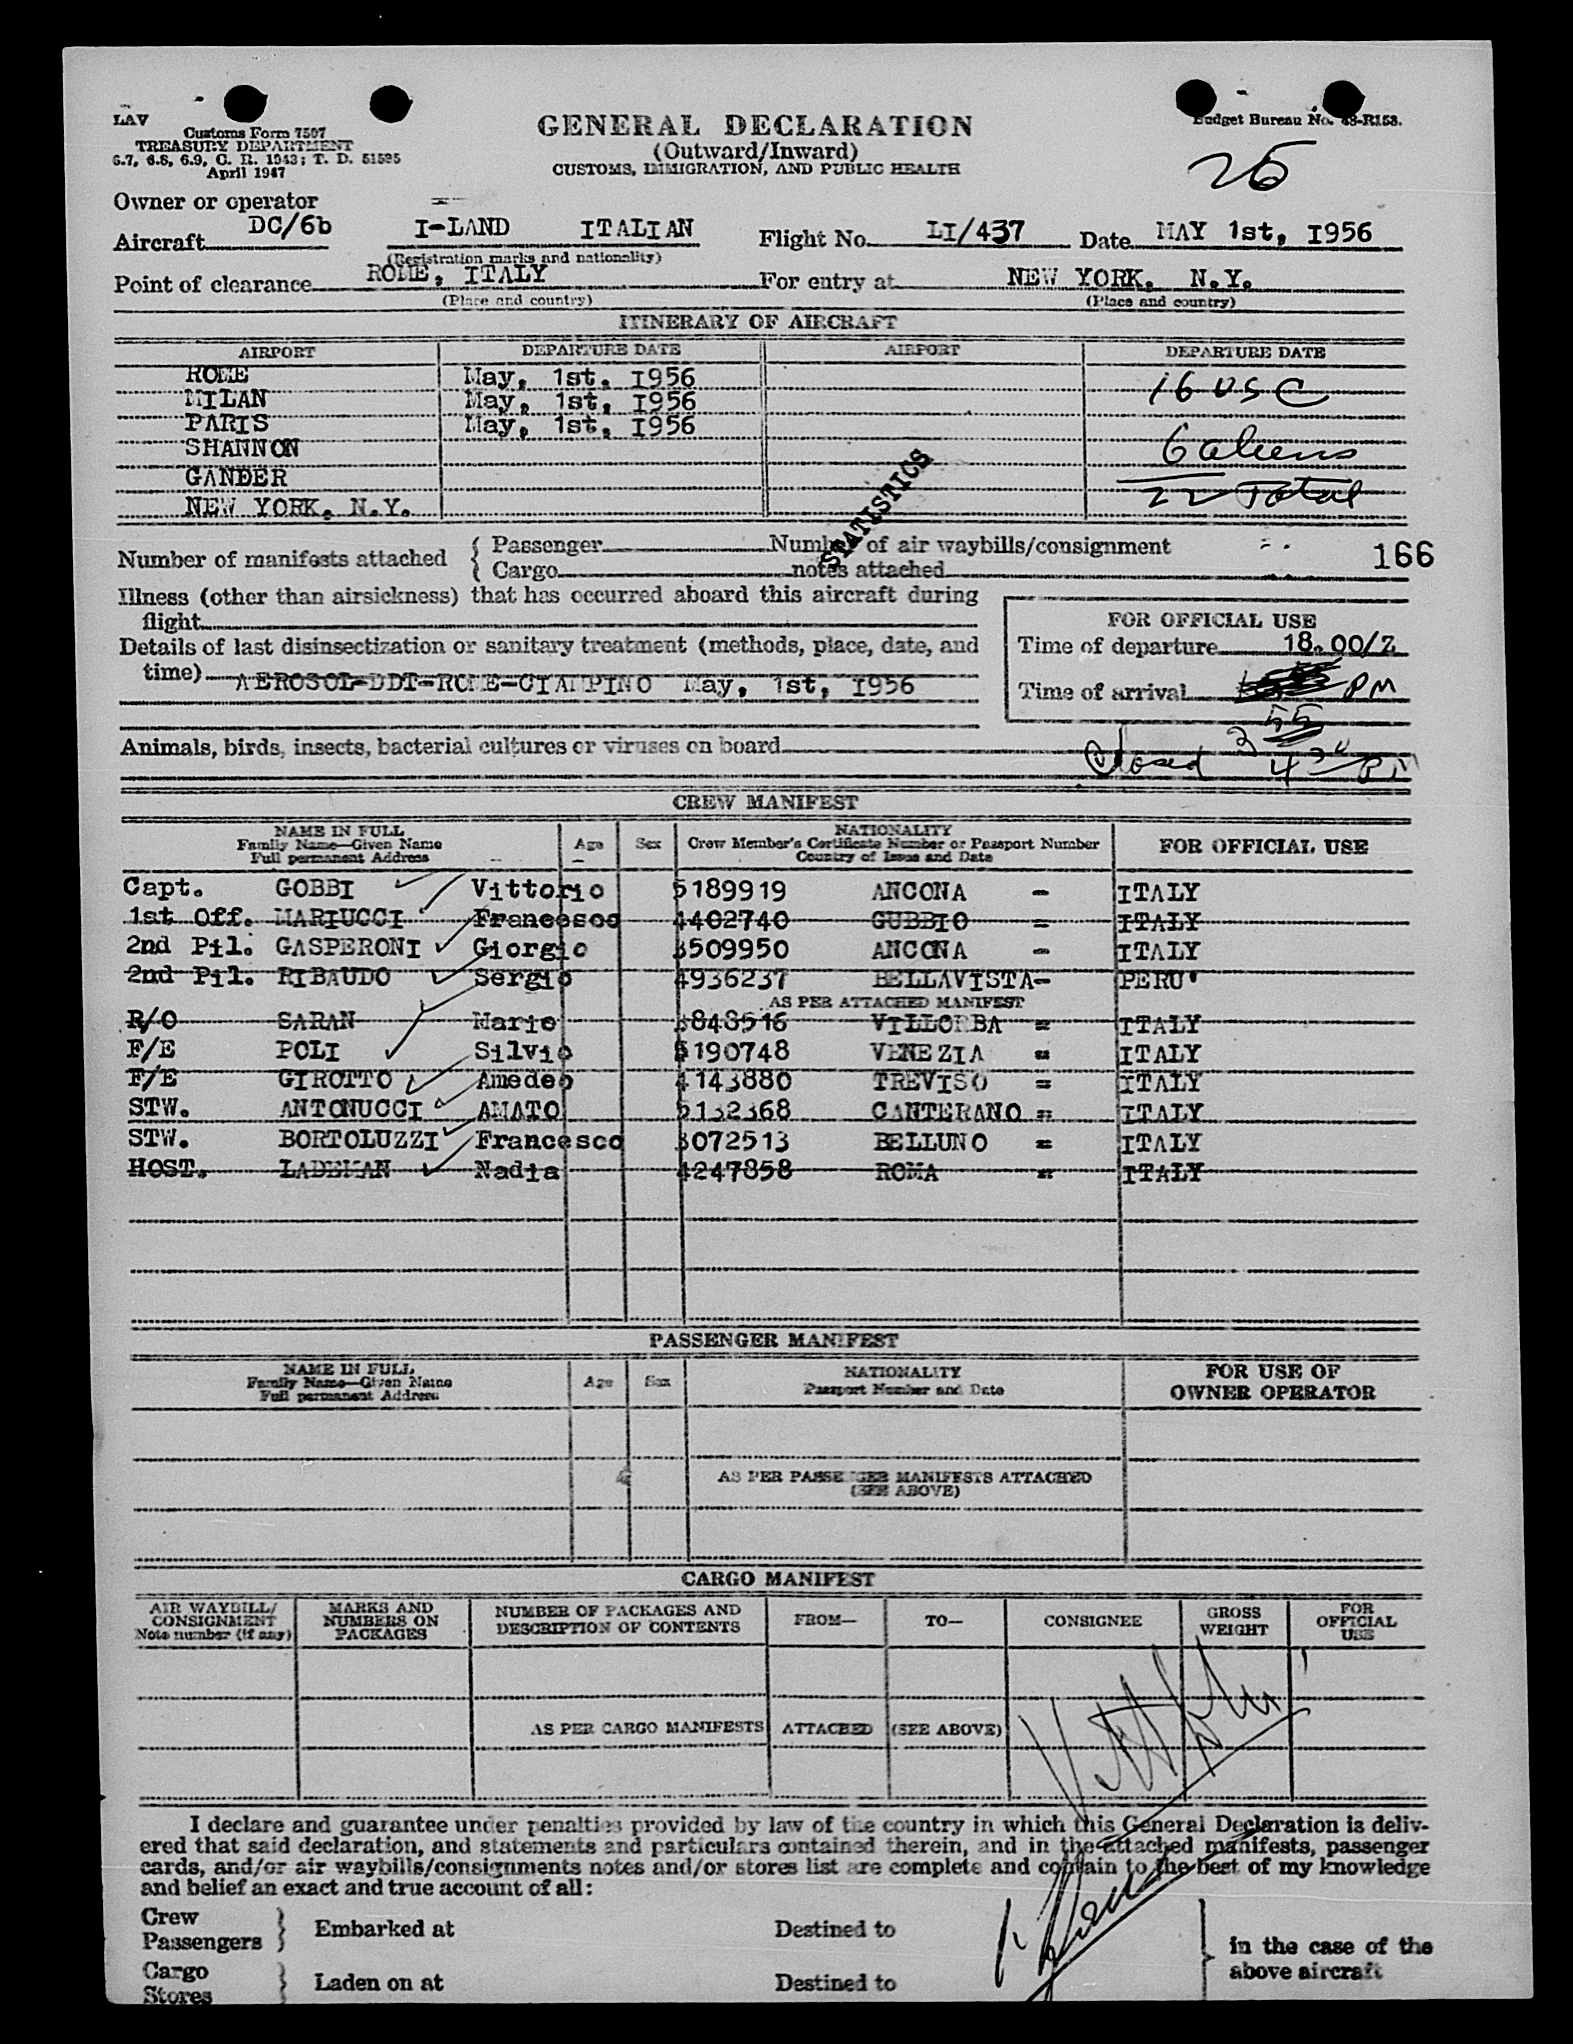 LAV
Customs Form 7507
TREASURY DEPARTMENT
6.7, 6.8, 6.9, C. R. 1943; T. D. 51595
April 1947
GENERAL DECLARATION
(Outward/Inward)
CUSTOMS, IMMIGRATION, AND PUBLIC HEALTH
Budget Bureau No. 48-R153.
25
Owner or operator
Aircraft DC/6b I-LAND ITALIAN Flight No. LI/437 Date MAY 1st, I956
(Registration marks and nationality)
Point of clearance ROME, ITALY For entry at NEW YORK, N.Y.
(Place and country) (Place and country)
ITINERARY OF AIRCRAFT
AIRPORT DEPARTURE DATE AIRPORT DEPARTURE DATE
ROME May, 1st, I956
MILAN May, 1st, I956 16 USC
PARIS May, 1st, I956
SHANNON 6 aliens
GANDER
NEW YORK, N.Y. 22 Total
STATISTICS
Number of manifests attached { Passenger Number of air waybills/consignment
Cargo notes attached
166
Illness (other than airsickness) that has occurred aboard this aircraft during
flight
Details of last disinsectization or sanitary treatment (methods, place, date, and
time) AEROSOL-DDT-ROME-CIAMPINO May, 1st, I956
FOR OFFICIAL USE
Time of departure 18.00/Z
Time of arrival PM
3 55
Animals, birds, insects, bacterial cultures or viruses on board
Closed 4 30 PM
CREW MANIFEST
NAME IN FULL
Family Name—Given Name
Full permanent Address
Age Sex
NATIONALITY
Crew Member's Certificate Number or Passport Number
Country of Issue and Date
FOR OFFICIAL USE
Capt. GOBBI Vittorio 5189919 ANCONA - ITALY
1st Off. MARIUCCI Francesco 4402740 GUBBIO = ITALY
2nd Pil. GASPERONI Giorgio 3509950 ANCONA - ITALY
2nd Pil. RIBAUDO Sergio 4936237 BELLAVISTA- PERU'
AS PER ATTACHED MANIFEST
R/O SARAN Mario 3848516 VILLORBA = ITALY
F/E POLI Silvio 5190748 VENEZIA = ITALY
F/E GIROTTO Amedeo 4143880 TREVISO = ITALY
STW. ANTONUCCI AMATO 5132368 CANTERANO = ITALY
STW. BORTOLUZZI Francesco 3072513 BELLUNO = ITALY
HOST. LADEMAN Nadia 4247858 ROMA = ITALY
PASSENGER MANIFEST
NAME IN FULL
Family Name—Given Name
Full permanent Address
Age Sex
NATIONALITY
Passport Number and Date
FOR USE OF
OWNER OPERATOR
AS PER PASSENGER MANIFESTS ATTACHED
(SEE ABOVE)
CARGO MANIFEST
AIR WAYBILL/
CONSIGNMENT
Note number (if any)
MARKS AND
NUMBERS ON
PACKAGES
NUMBER OF PACKAGES AND
DESCRIPTION OF CONTENTS
FROM—
TO—
CONSIGNEE
GROSS
WEIGHT
FOR
OFFICIAL
USE
AS PER CARGO MANIFESTS ATTACHED (SEE ABOVE)
I declare and guarantee under penalties provided by law of the country in which this General Declaration is deliv-
ered that said declaration, and statements and particulars contained therein, and in the attached manifests, passenger
cards, and/or air waybills/consignments notes and/or stores list are complete and contain to the best of my knowledge
and belief an exact and true account of all:
Crew
Passengers } Embarked at Destined to
Cargo
Stores } Laden on at Destined to
} in the case of the
above aircraft